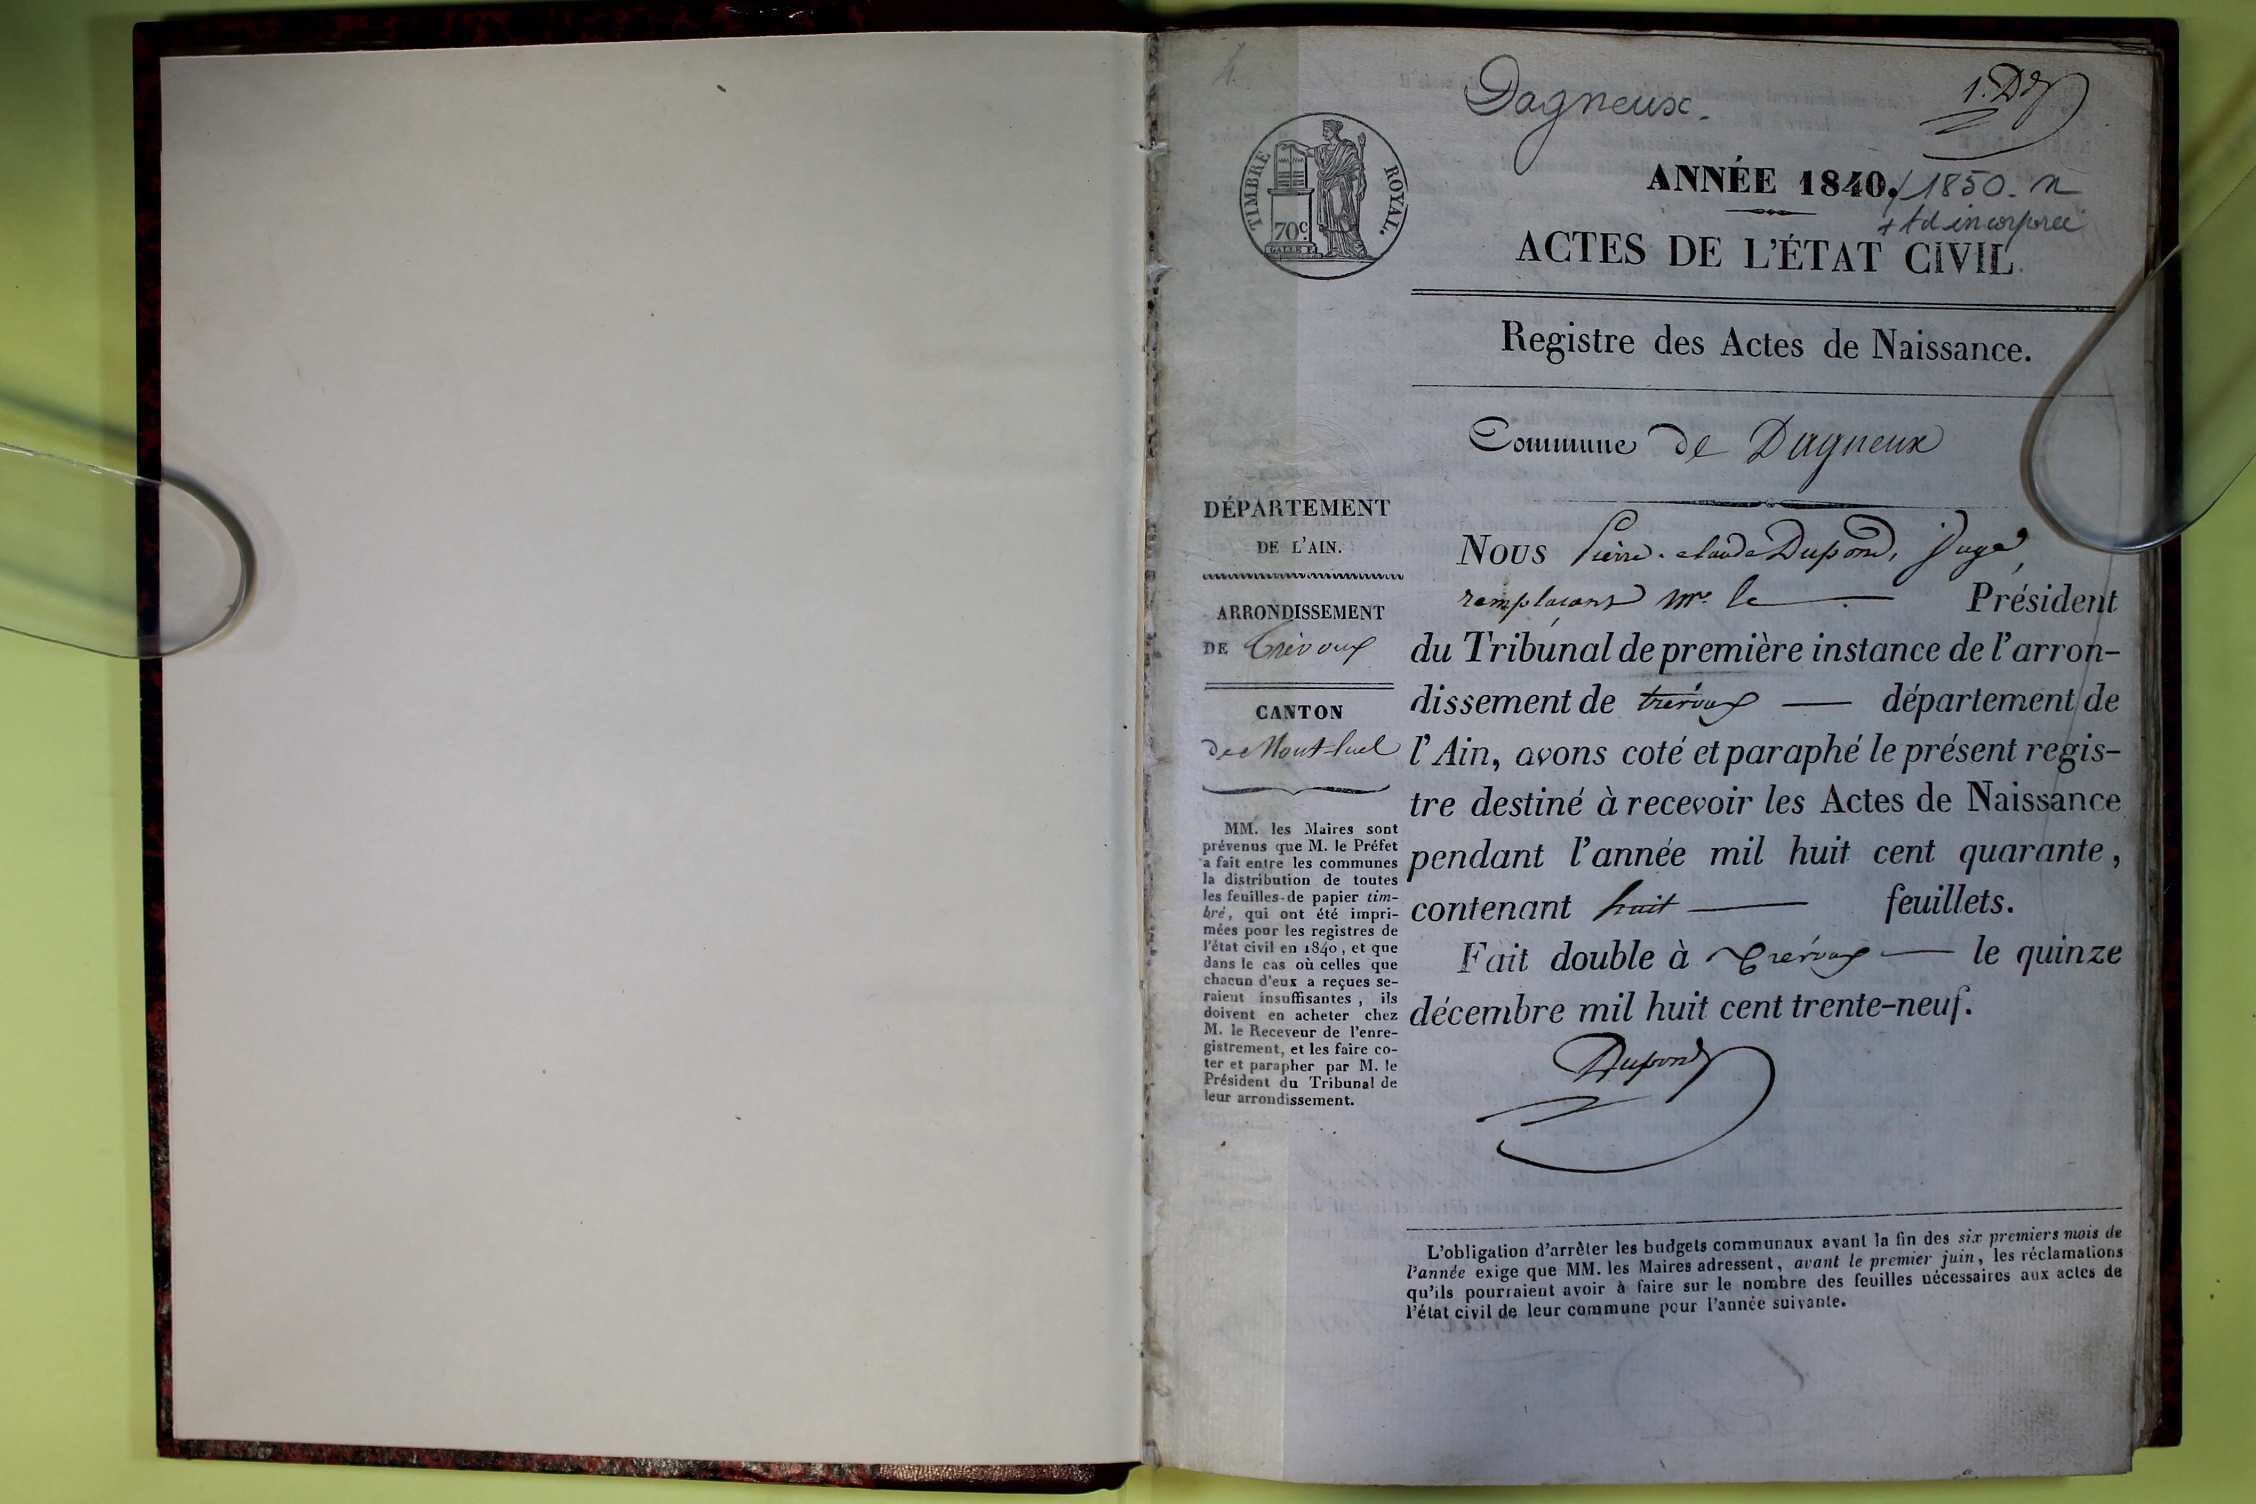 Dagneux.
TIMBRE ROYAL.
70c
GALLE F.
ANNÉE 1840. / 1850. n
+ td incorporée
ACTES DE L'ÉTAT CIVIL.
Registre des Actes de Naissance.
Commune de Dagneux
DÉPARTEMENT
DE L'AIN.
ARRONDISSEMENT
DE Trévoux
CANTON
de Mont-luel
MM. les Maires sont
prévenus que M. le Préfet
a fait entre les communes
la distribution de toutes
les feuilles de papier tim-
bré, qui ont été impri-
mées pour les registres de
l'état civil en 1840, et que
dans le cas où celles que
chacun d'eux a reçues se-
raient insuffisantes, ils
doivent en acheter chez
M. le Receveur de l'enre-
gistrement, et les faire co-
ter et parapher par M. le
Président du Tribunal de
leur arrondissement.
Nous Pierre-claude Dupond, Juge,
remplaçant Mr. le Président
du Tribunal de première instance de l'arron-
dissement de trévoux — département de
l'Ain, avons coté et paraphé le présent regis-
tre destiné à recevoir les Actes de Naissance
pendant l'année mil huit cent quarante,
contenant huit — feuillets.
Fait double à Trévoux — le quinze
décembre mil huit cent trente-neuf.
Dupond
L'obligation d'arrêter les budgets communaux avant la fin des six premiers mois de
l'année exige que MM. les Maires adressent, avant le premier juin, les réclamations
qu'ils pourraient avoir à faire sur le nombre des feuilles nécessaires aux actes de
l'état civil de leur commune pour l'année suivante.